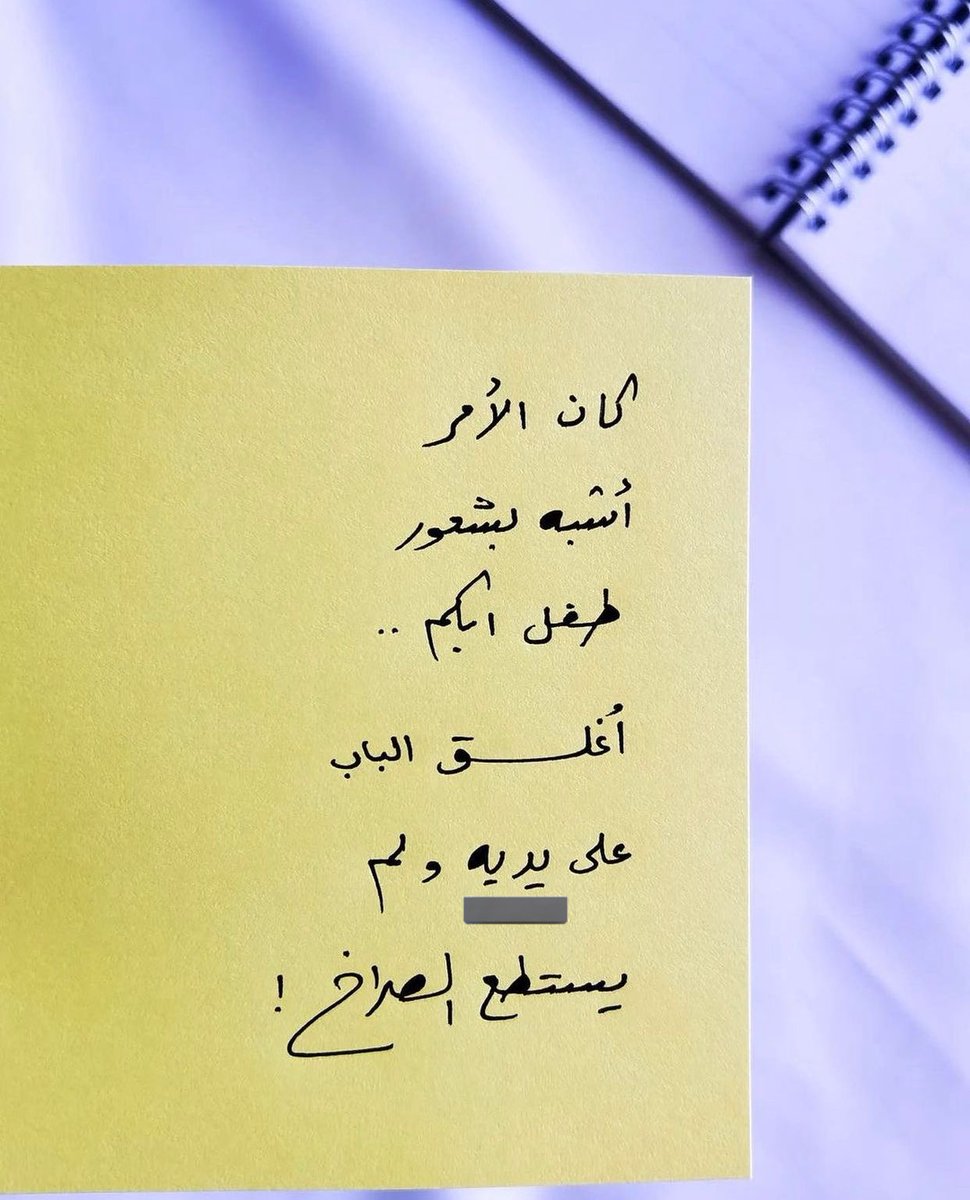 كان الأمر
أشبه بشعور
طفل ابكم ..
أُغلق الباب
على يديه و لم
يستطع الصراخ !